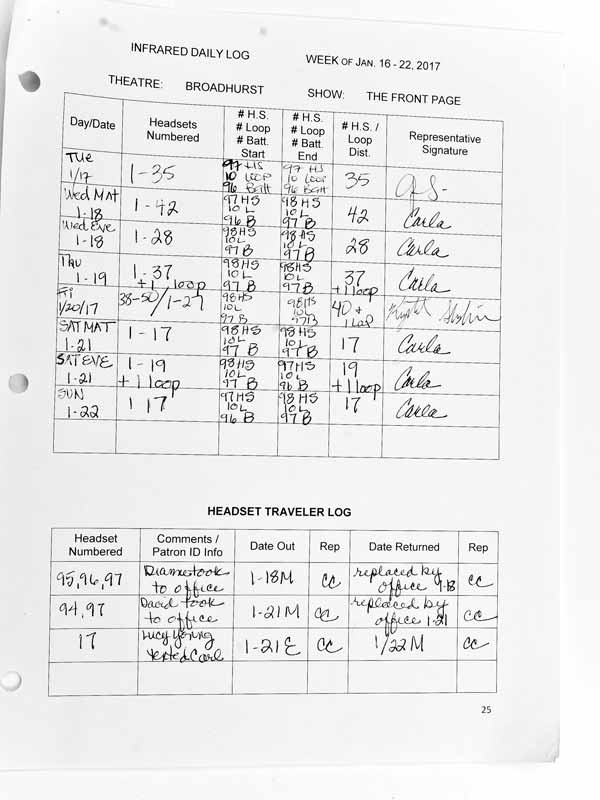 INFRARED DAILY LOG WEEK OF JAN. 16 - 22, 2017
THEATRE: BROADHURST SHOW: THE FRONT PAGE
Day/Date Headsets Numbered # H.S. # Loop # Batt. Start # H.S. # Loop # Batt. End # H.S. / Loop Dist. Representative Signature
TUE 1/17 1-35 97 HS 10 LOOP 96 Batt 97 HS 10 LOOP 96 Batt 35
Wed MAT 1-18 1-42 97 HS 10 L 96 B 98 HS 10 L 97 B 42 Carla
Wed Eve 1-18 1-28 98 HS 10 L 97 B 98 HS 10 L 97 B 28 Carla
Thu 1-19 1-37 +1 loop 98 HS 10 L 97 B 98 HS 10 L 97 B 37 +1 loop Carla
Fri 1/20/17 38-50/1-27 98 HS 10 L 97 B 98 HS 10 L 97 B 40 + 1 loop
SAT MAT 1-21 1-17 98 HS 10 L 97 B 98 HS 10 L 97 B 17 Carla
SAT EVE 1-21 1-19 +1 loop 98 HS 10 L 97 B 97 HS 10 L 96 B 19 +1 loop Carla
SUN 1-22 1 17 97 HS 10 L 96 B 98 HS 10 L 97 B 17 Carla
HEADSET TRAVELER LOG
Headset Numbered Comments / Patron ID Info Date Out Rep Date Returned Rep
95,96,97 Dianne took to office 1-18M CC replaced by office 1-18 CC
94,97 David took to office 1-21M CC replaced by office 1-21 CC
17 Lucy Young 1-21 E CC 1/22 M CC
25